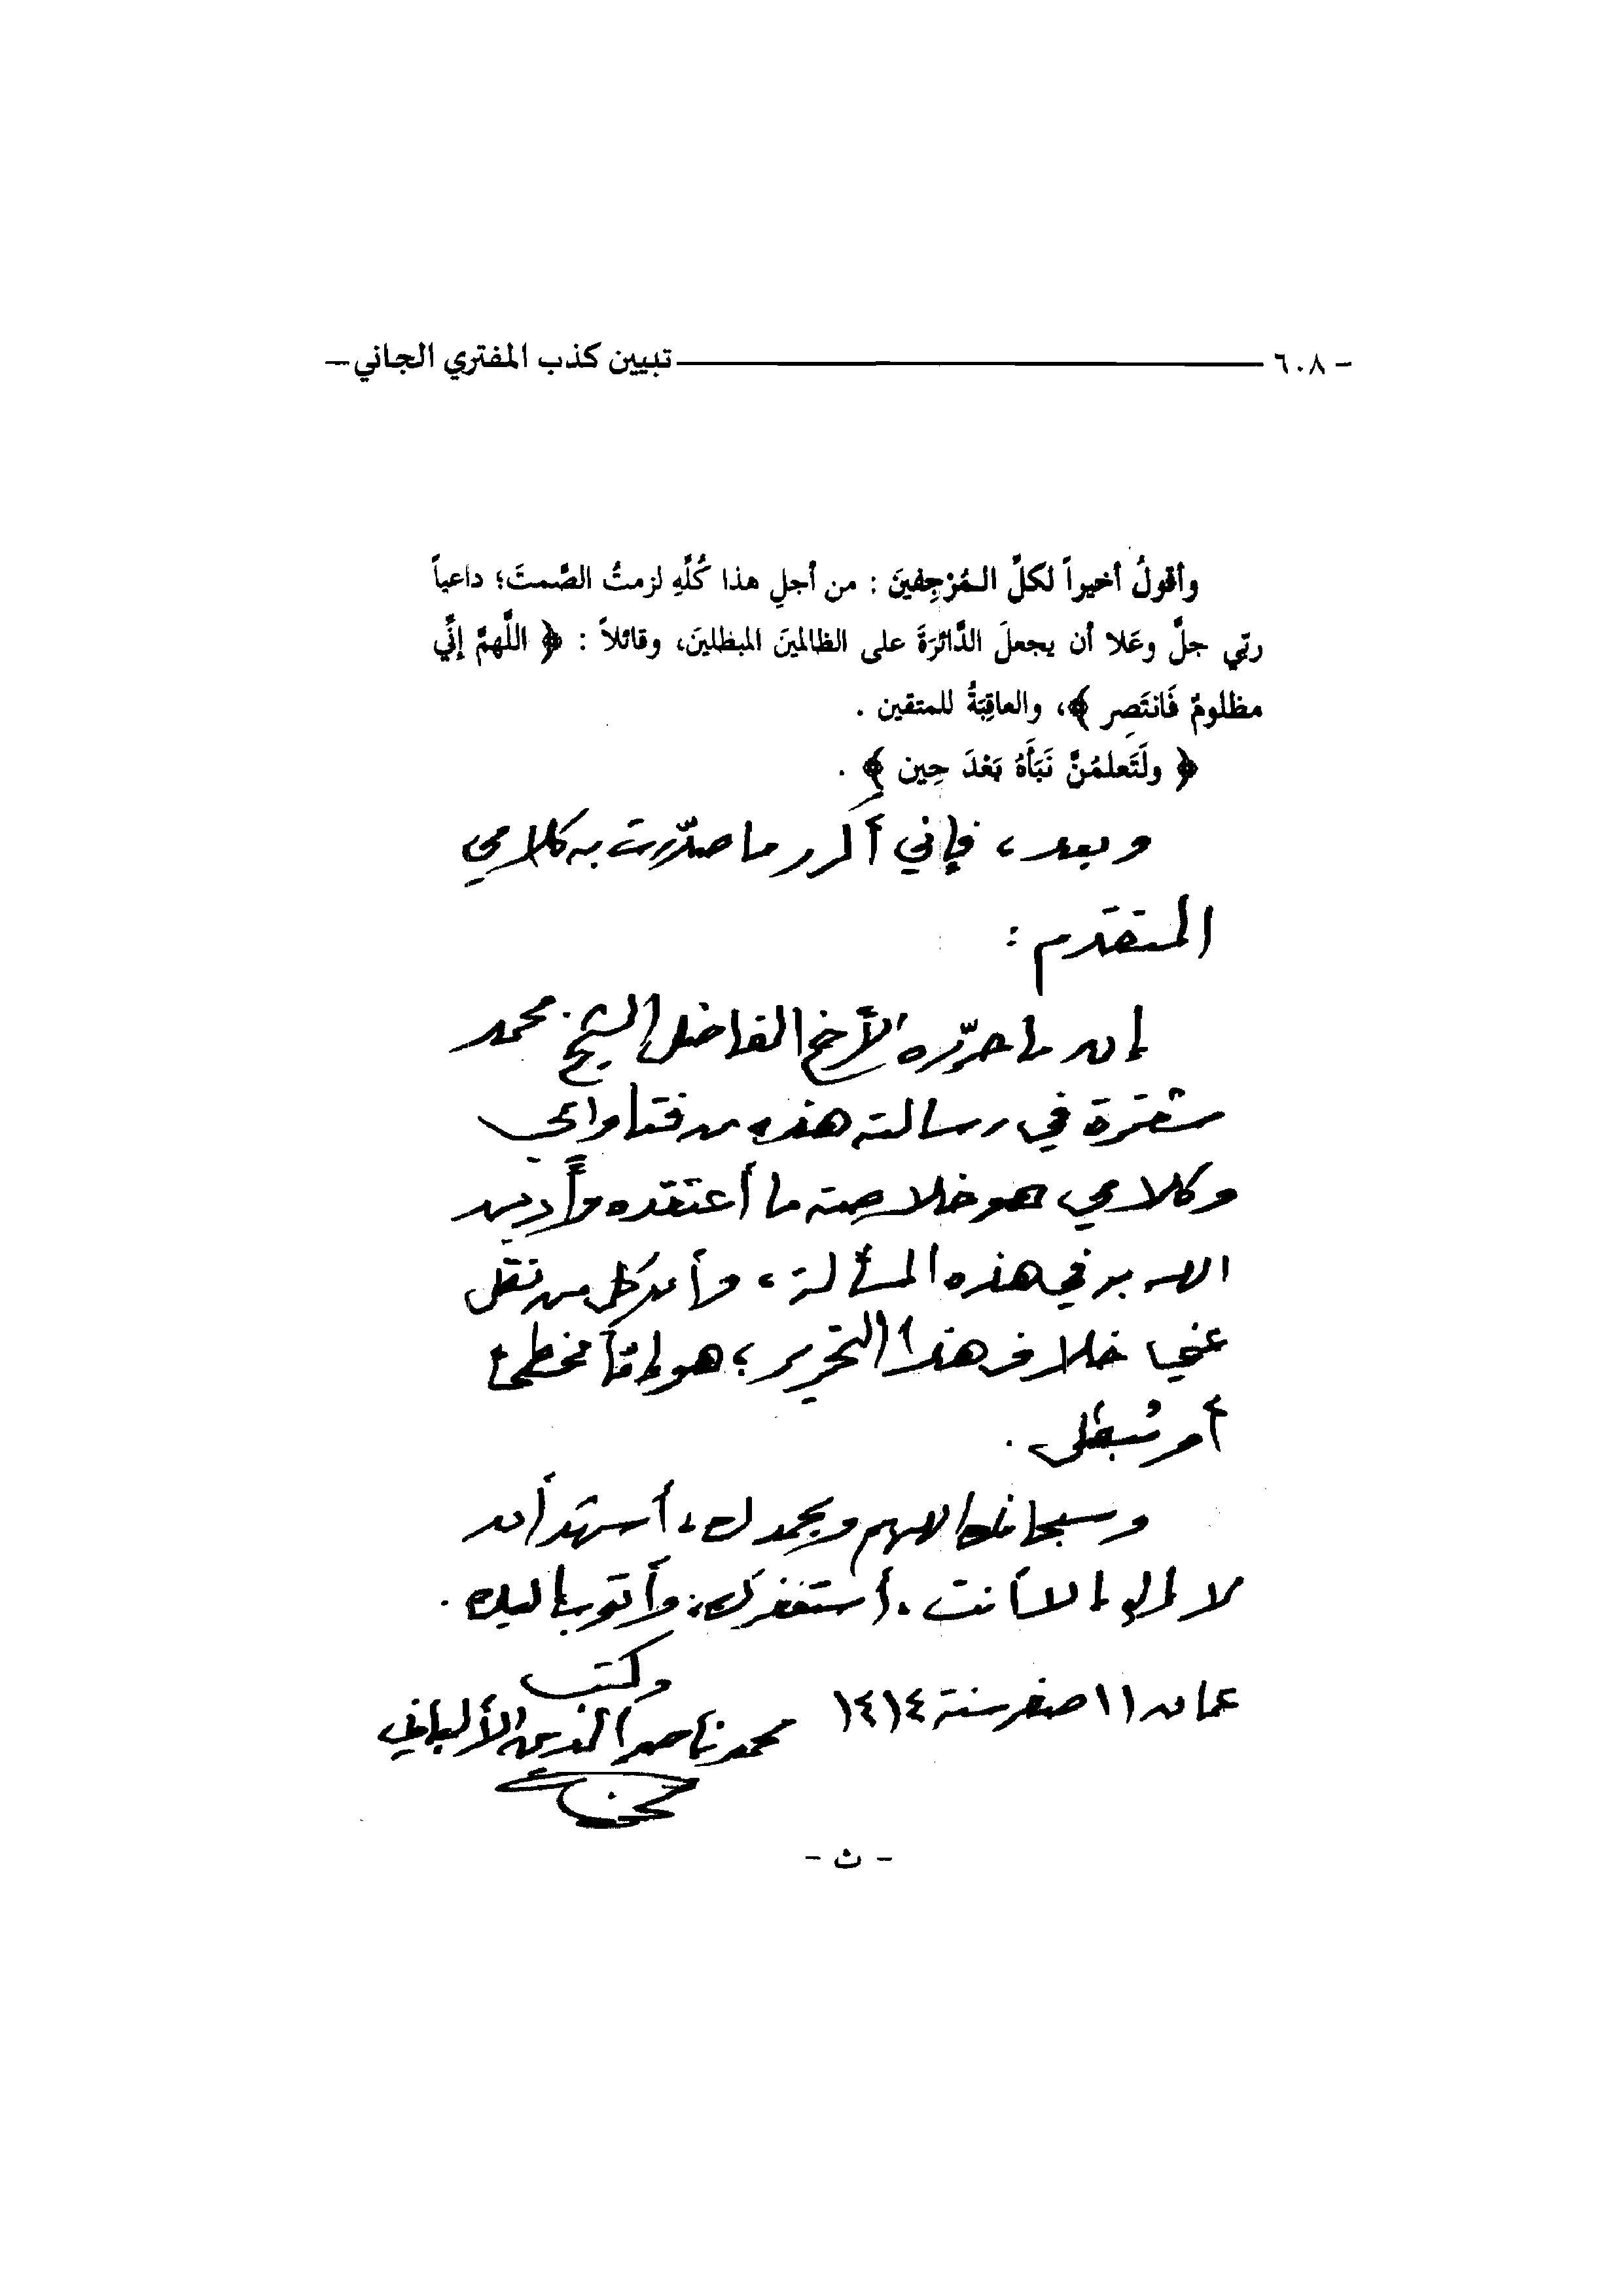 - ٦٠٨ تبيين كذب المفتري الجاني -
وأقولُ أخيراً لكلِّ المُرْجِفينَ : من أجلِ هذا كُلِّهِ لزمتُ الصَّمتَ؛ داعياً
ربّي جلَّ وعَلا أن يجعلَ الدَّائرَةَ على الظالمينَ المبطلينَ، وقائلاً : ﴿ اللَّهمَّ إنِّي
مظلومٌ فَانتَصِر ﴾، والعاقِبَةُ للمتقين .
﴿ ولَتَعلمُنَّ نَبَأَهُ بَعْدَ حِين ﴾ .
وبعد، فإني أكرر ما صدّرت به كلامي
المتقدم :
إن ما حرّره الأخ الفاضل الشيخ محمد
شقرة في رسالته هذه من فتاواي
وكلامي هو خلاصة ما أعتقده وأدين
الله به في هذه المسألة، وأن كل من نقل
عني خلاف هذا التحرير؛ هو إمّا مخطئ
أو مُبطل .
وسبحانك اللهم وبحمدك، أشهد أن
لا إله إلا أنت، أستغفرك، وأتوب إليك .
وكتب
عمان ١١ صفر سنة ١٤١٤ محمد ناصر الدين الألباني
- ث -